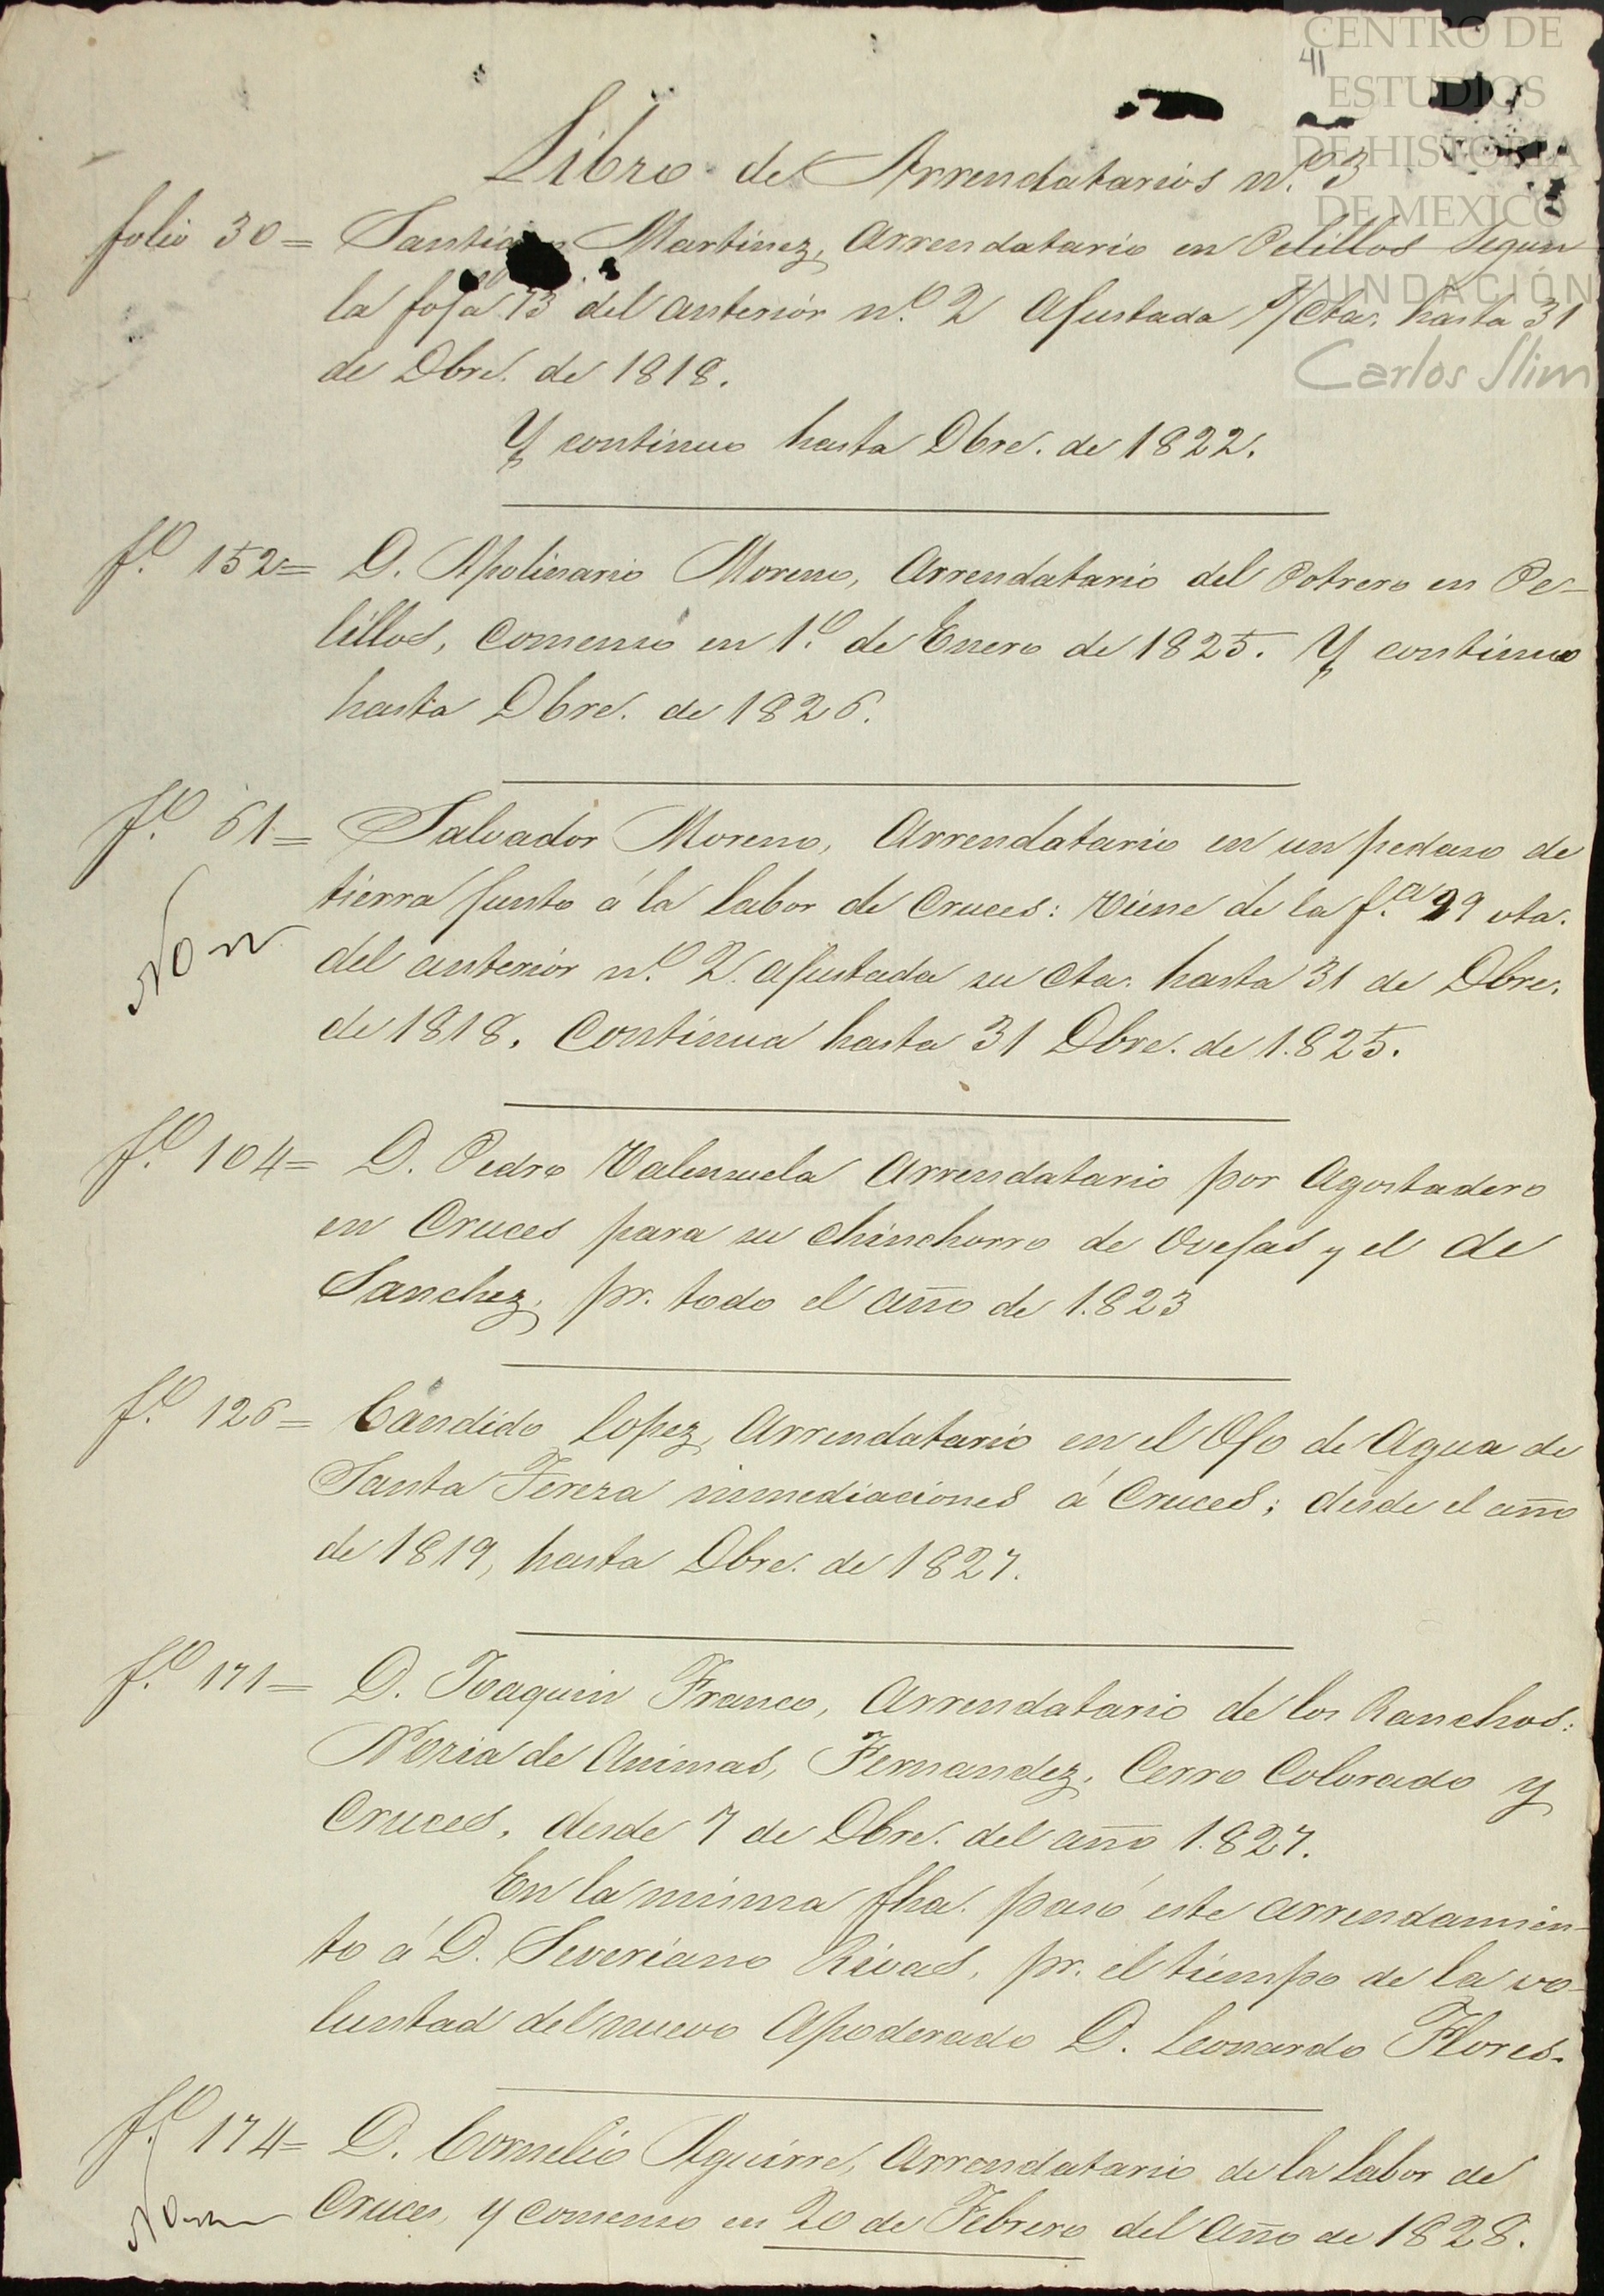 CENTRO DE
ESTUDIOS
DE HISTORIA
DE MEXICO
FUNDACIÓN
Carlos Slim
41
Libro de Arrendatarios n.º 3
folio 30= Santiago Martinez, Arrendatario en Pelillos Segun
la foja 13 del anterior n.º 2 Ajustada s/Cta. hasta 31
de Dbre. de 1818.
Y continuo hasta Dbre. de 1822.
f.º 152= D. Apolinario Moreno, Arrendatario del Potrero en Pe-
lillos, Comenso en 1.º de Enero de 1825. Y continuo
hasta Dbre. de 1826.
f.º 61= Salvador Moreno, Arrendatario en un pedaso de
tierra junto á la labor de Cruces: Viene de la f.ª 29 vta.
del anterior n.º 2. ajustada su Cta. hasta 31 de Dbre.
de 1818. Continua hasta 31 Dbre. de 1.825.
f.º 104= D. Pedro Valenzuela Arrendatario por Agostadero
en Cruces para su Chinchorro de Ovejas y el de
Sanchez, pr. todo el año de 1.823
f.º 126= Cándido Lopez, Arrendatario en el Ojo de Agua de
Santa Tereza inmediaciones á Cruces; desde el año
de 1819, hasta Dbre. de 1827.
f.º 171= D. Joaquin Franco, Arrendatario de los Ranchos:
Noria de Animas, Fernandez, Cerro Colorado y
Cruces, desde 7 de Dbre. del año 1.827.
En la misma fha. pasó este arrendamien-
to á D. Severiano Rivas, pr. el tiempo de la vo-
luntad del nuevo Apoderado D. Leonardo Flores.
f.º 174= D. Cornelio Aguirre, Arrendatario de la labor de
Cruces, y comenso en 20 de Febrero del Año de 1828.